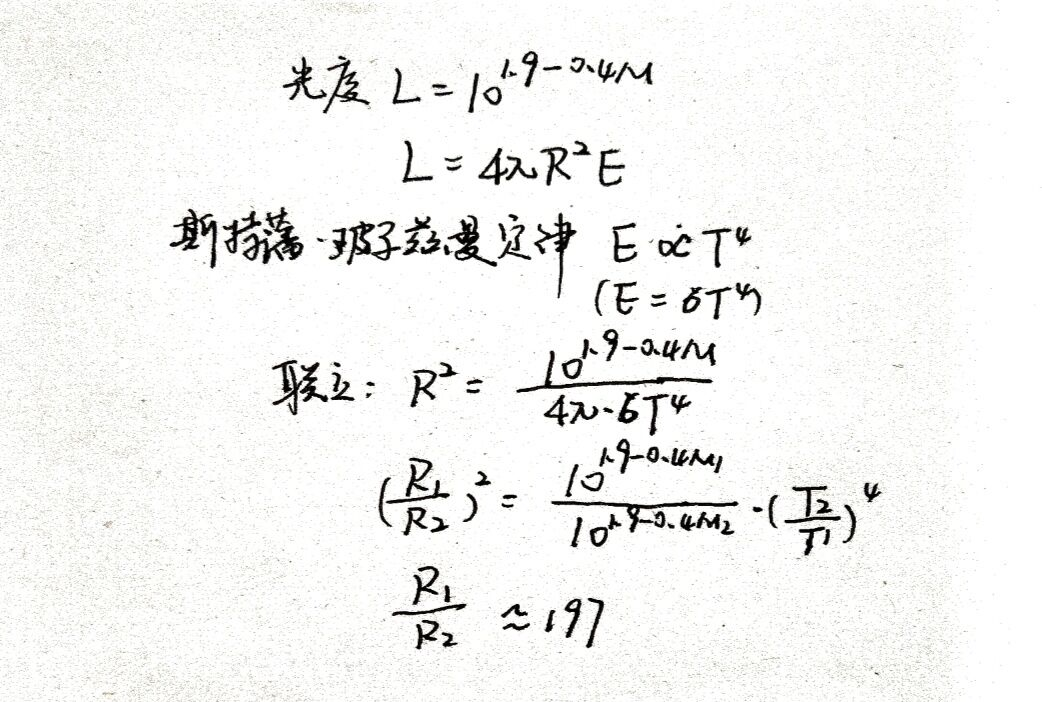 光度 L = 10^{1.9-0.4M}
L = 4πR²E
斯特藩·玻子兹曼定律 E ∝ T⁴
(E = σT⁴)
联立: R² = \frac{10^{1.9-0.4M}}{4π·σT⁴}
(\frac{R₁}{R₂})² = \frac{10^{1.9-0.4M₁}}{10^{1.9-0.4M₂}} · (\frac{T₂}{T₁})⁴
\frac{R₁}{R₂} ≈ 197